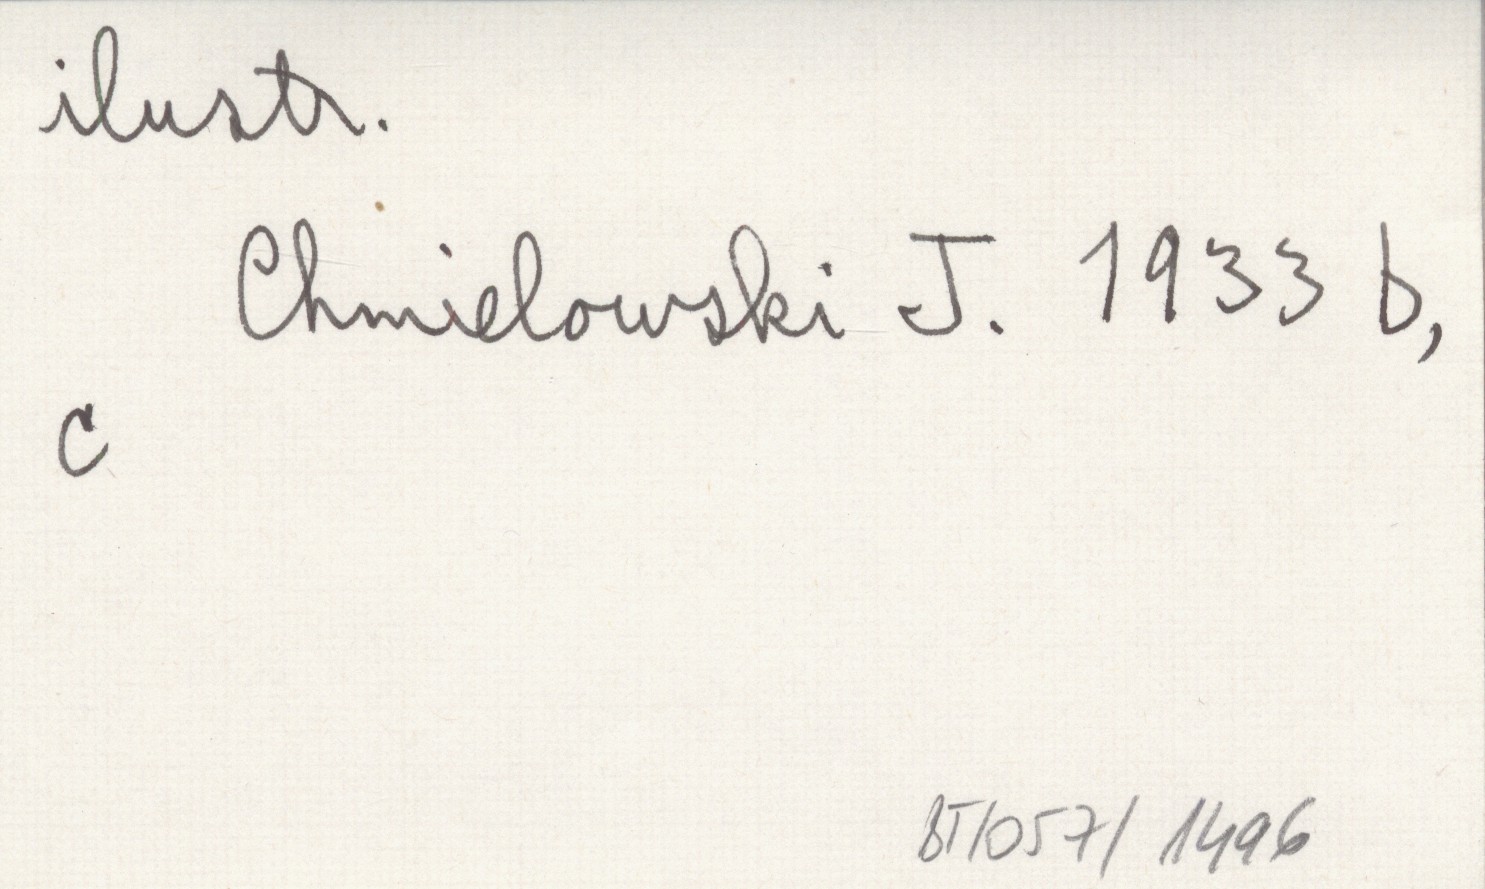 ilustr.
Chmielowski J. 1933 b,
c
BT/057/ 1496